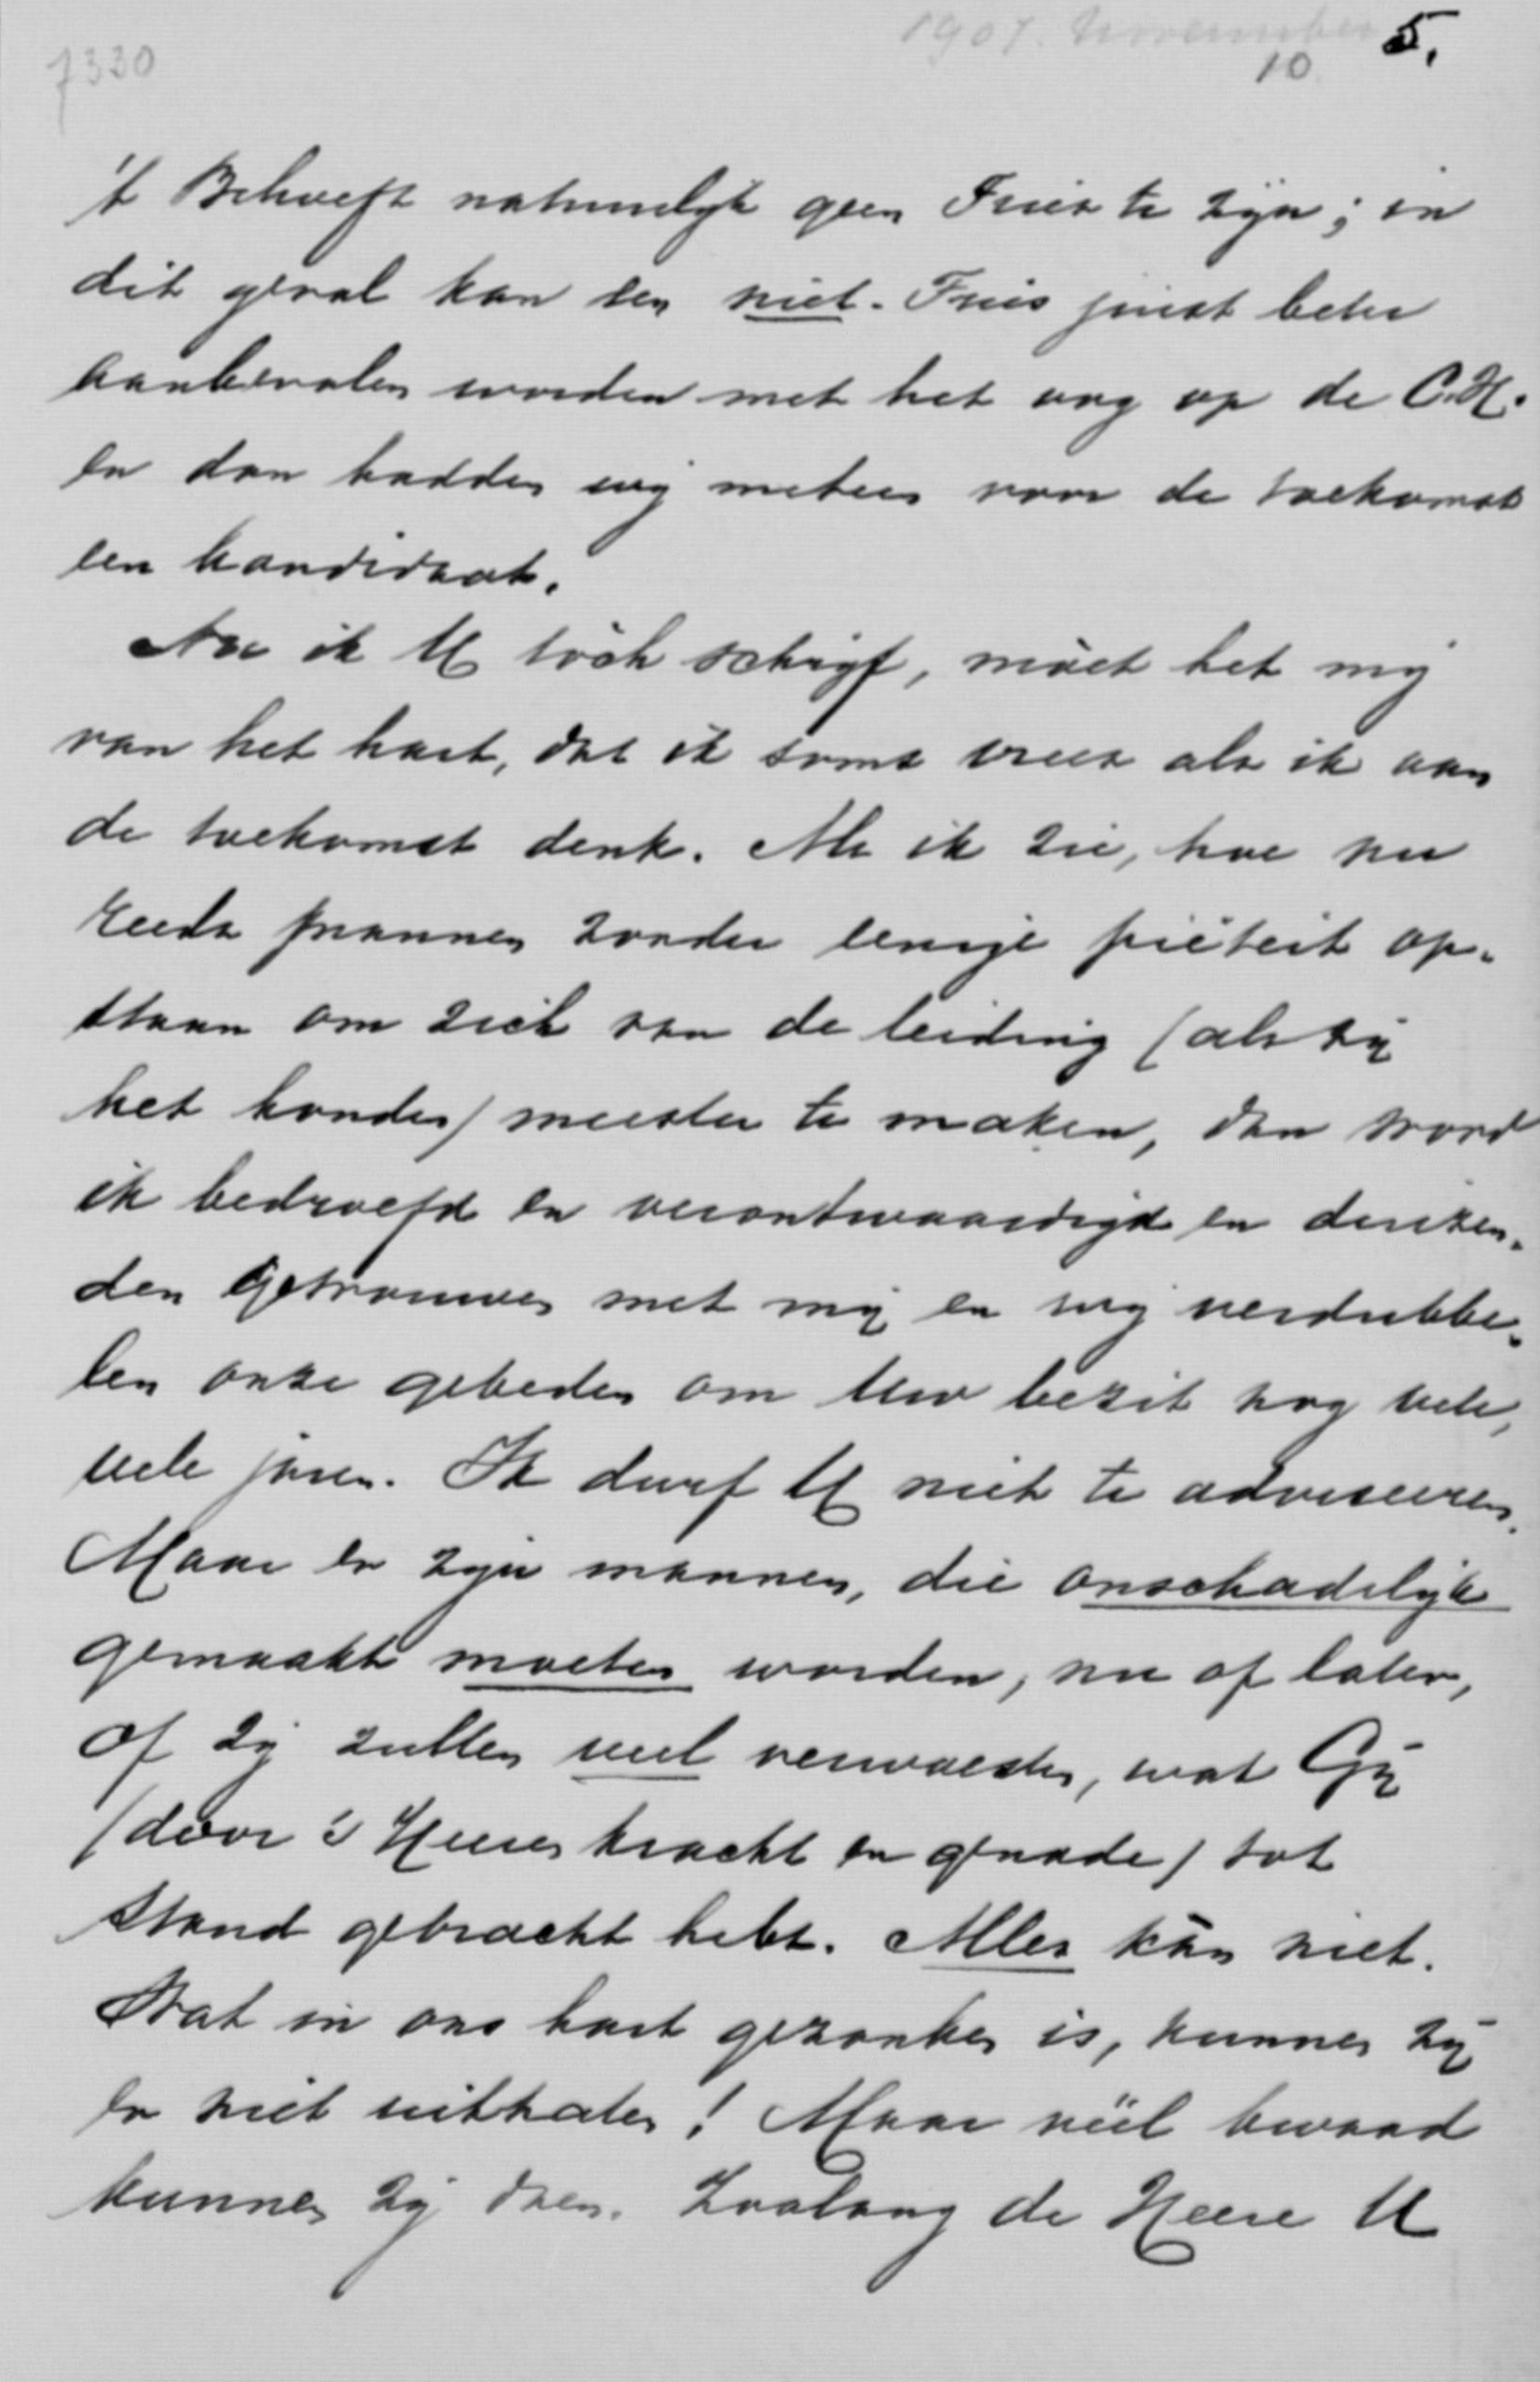 7330
1907. November 5.
10
't Behoeft natuurlijk geen Fries te zijn; in
dit geval kan een niet-Fries juist beter
aanbevolen worden met het oog op de C.H.
en dan hadden wij meteen voor de toekomst
een kandidaat.
Nu ik U tòch schrijf, mòet het mij
van het hart, dat ik soms vrees als ik aan
de toekomst denk. Als ik zie, hoe nu
reeds mannen zonder eenige piëteit op-
staan om zich van de leiding (als zij
het konden) meester te maken, dan word
ik bedroefd en verontwaardigd en duizen-
den getrouwen met mij en wij verdubbe-
len onze gebeden om Uw bezit nog vele,
vele jaren. Ik durf U niet te adviseeren.
Maar er zijn mannen, die onschadelijk
gemaakt moeten worden, nu of later,
of zij zullen veel verwoesten, wat Gij
(door 's Heeren kracht en genade) tot
stand gebracht hebt. Alles kán niet.
Wat in ons hart gezonken is, kunnen zij
er niet uithalen! Maar véél kwaad
kunnen zij doen. Zoolang de Heere U